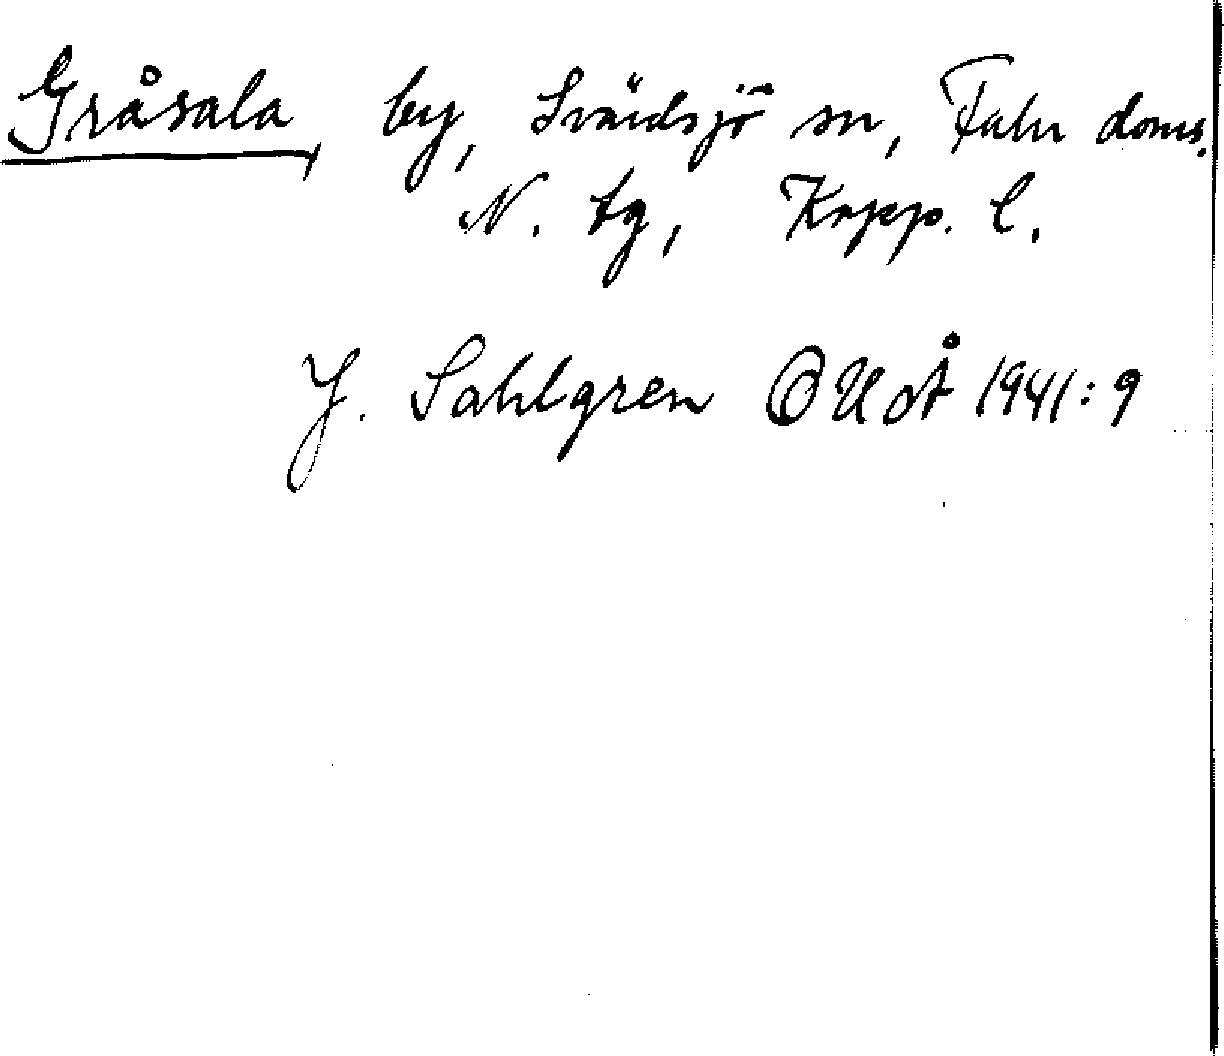 Gråsala, by, Svärdsjö sn, Falu doms.
N. tg, Kopp. l.
J. Sahlgren OUOÅ 1941:9